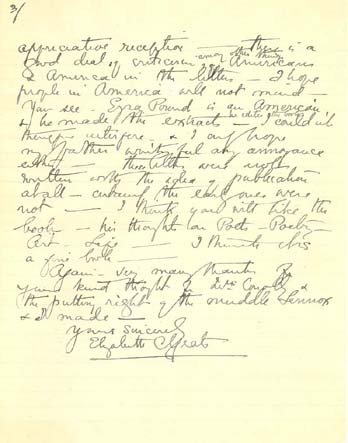 3/
appreciative reception — there is a
among other things
good deal of criticism of Americans
& America in the letters — I hope
people in America will not mind —
You see — Ezra Pound is an American
he edited the book
& he made the extracts — I couldn't
interfere — & I only hope
my father won't feel any annoyance
either — the letters were not
written with the idea of publication
at all — the early ones were
not — I think you will like the
book — his thoughts on Poets — Poetry —
Art — Life — I think it is
a fine book —
Again — very many thanks for
your kind thought of Mrs
& the putting right of the muddle Lennox
& I made —
Yours sincerely
Elizabeth C Yeats